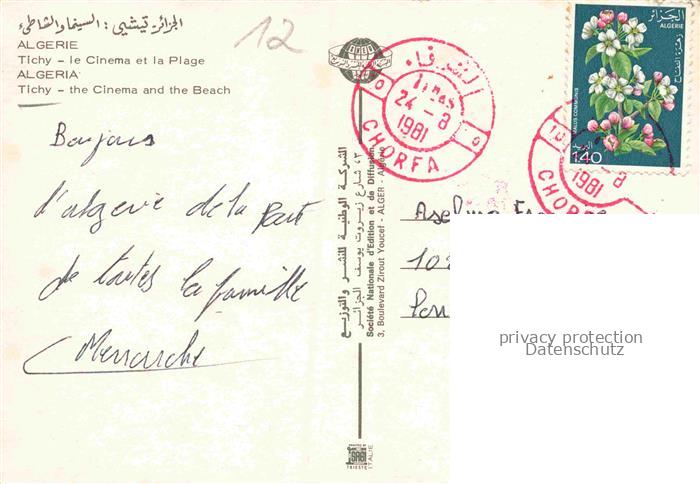 الجزائر- تيشي : السينما والشاطئ
ALGERIE
Tichy - le Cinema et la Plage
ALGERIA
Tichy - the Cinema and the Beach
12
Bonjour
d'algerie de la Part
de toutes la famille
الشركة الوطنية للنشر والتوزيع
٣، شارع زيروت يوسف الجزائر
Société Nationale d'Edition et de Diffusion
3, Boulevard Zirout Youcef - ALGER - Algérie
SNED
PRINTED BY
TRIESTE
ITALIE
الشرفاء
24 - 8
1981
CHORFA
الجزائر
ALGERIE
زهرة التفاح
MALUS COMMUNIS
البريد
1.40
- 8
1981
CHORFA
10
privacy protection
Datenschutz